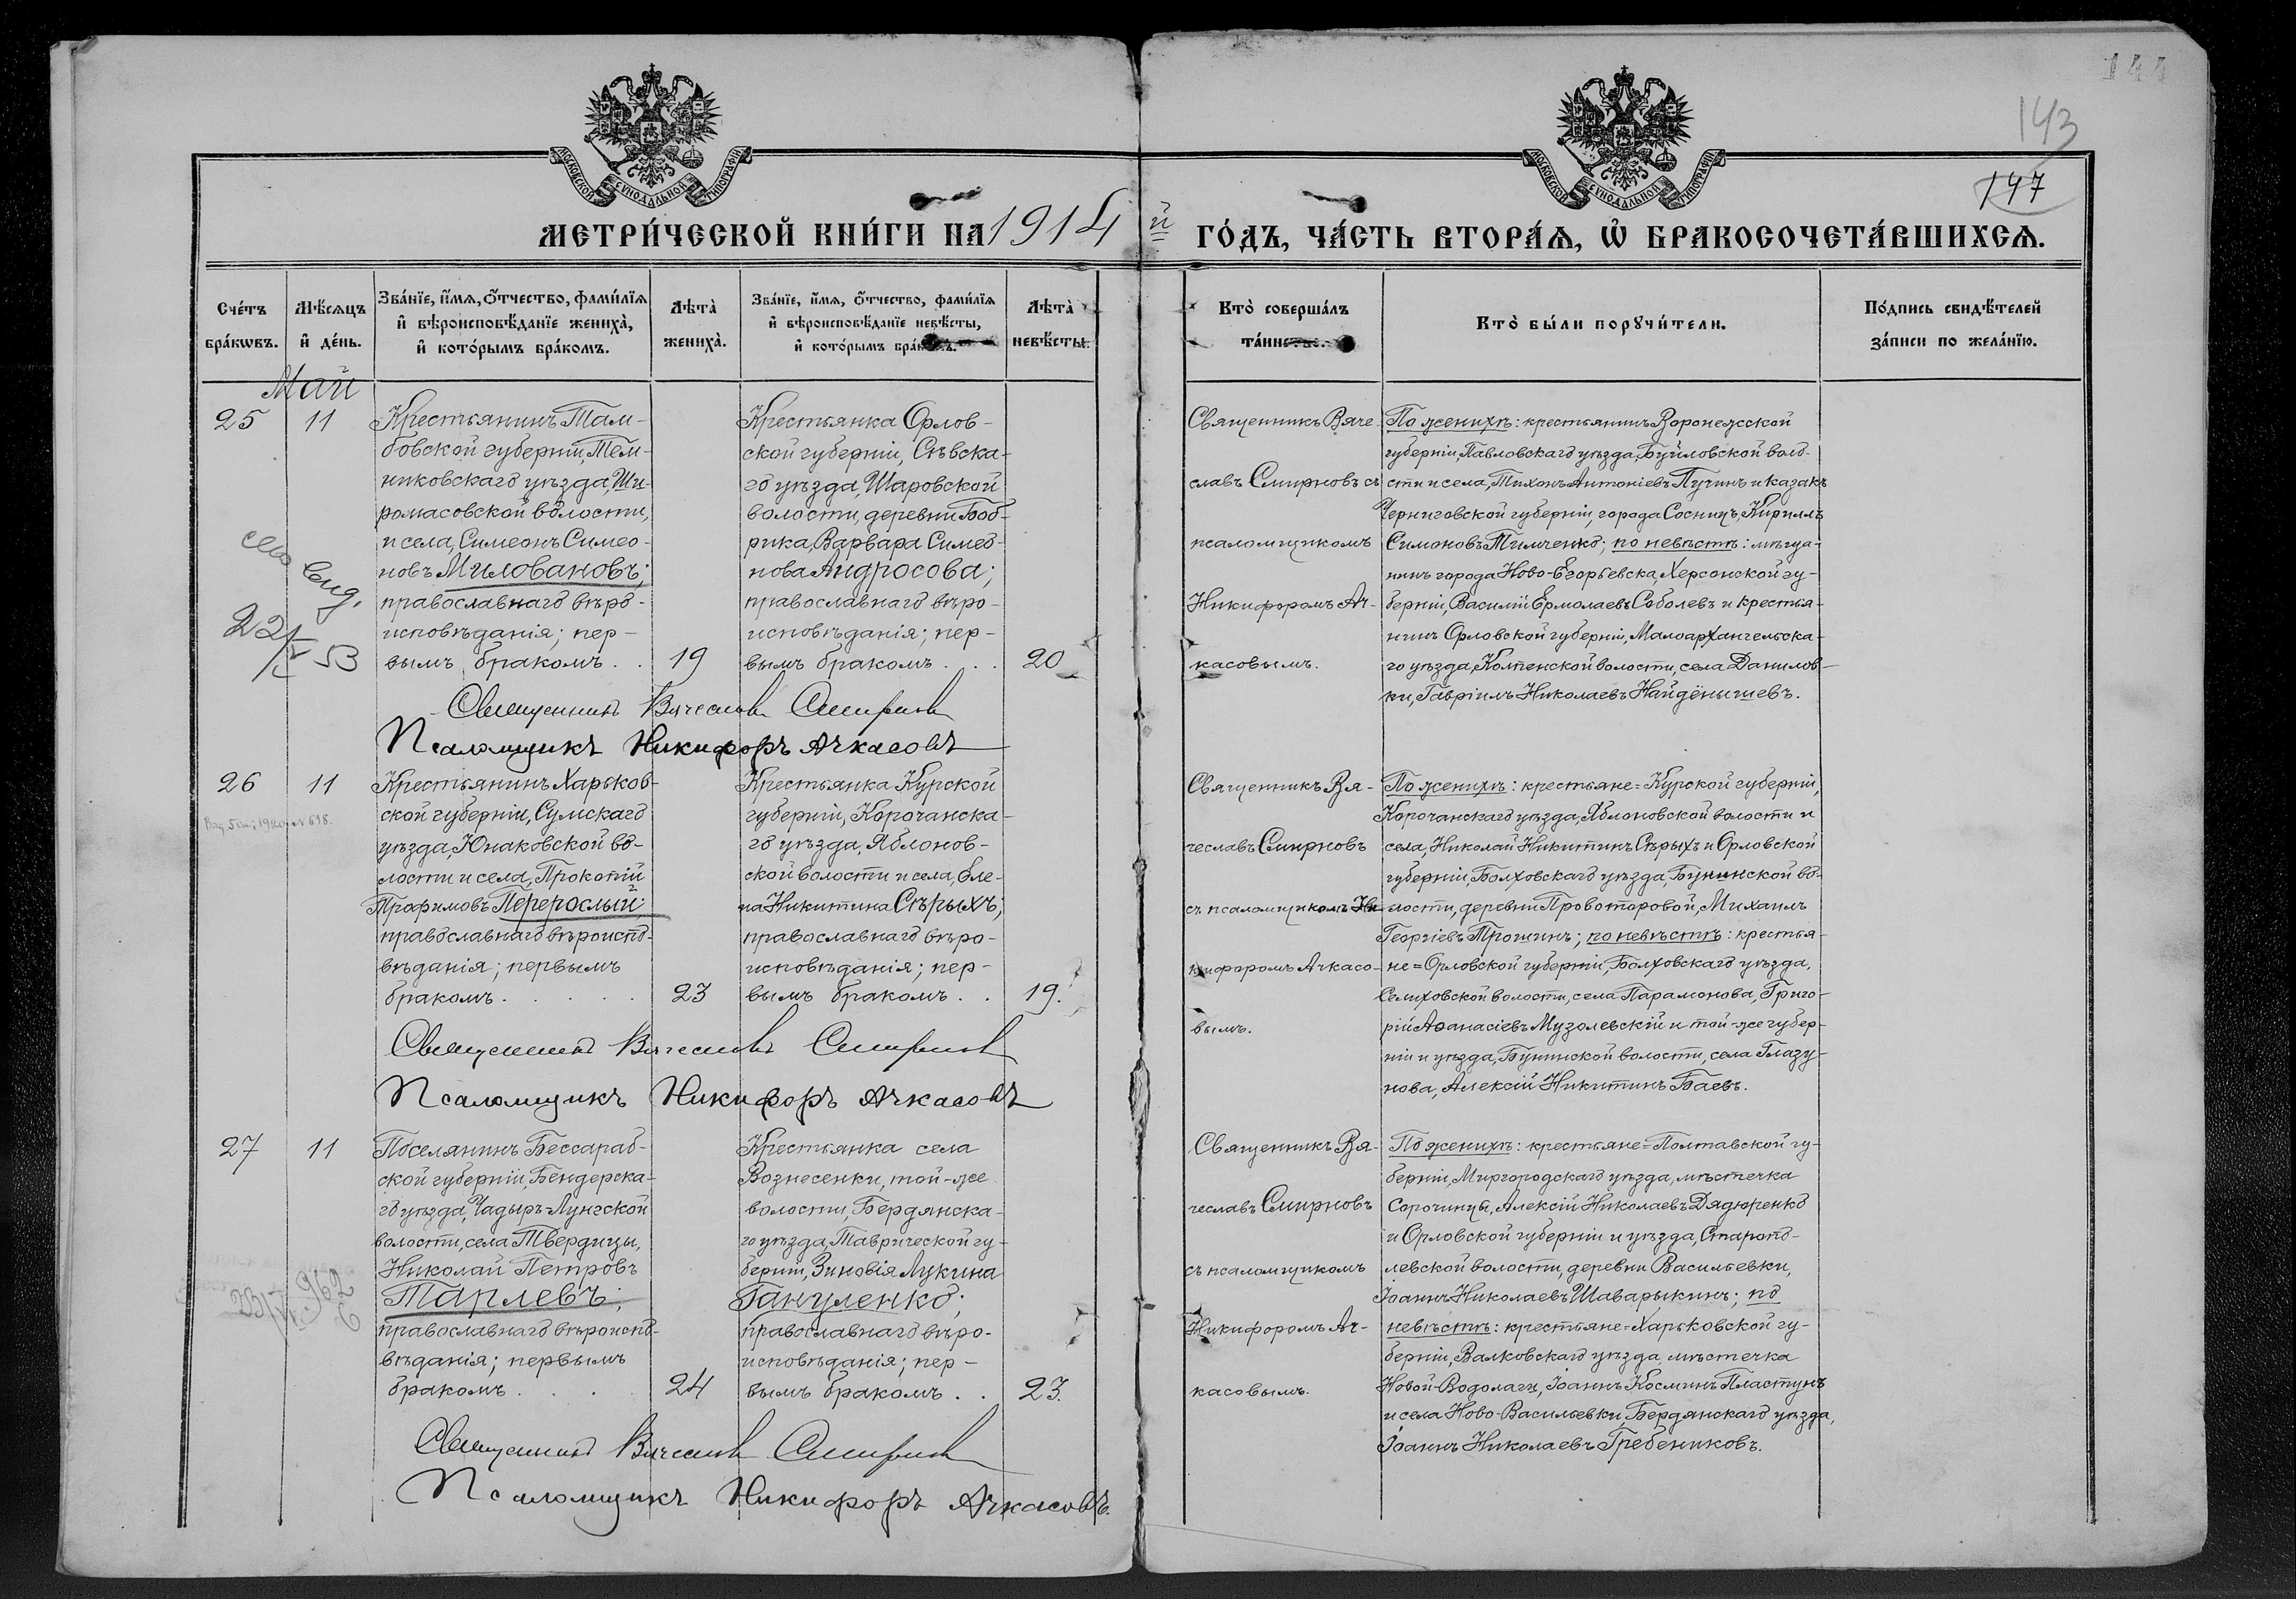 144
143
147
МОСКОВСКОЙ СѴНОДАЛЬНОЙ ТИПОГРАФІИ
МОСКОВСКОЙ СѴНОДАЛЬНОЙ ТИПОГРАФІИ
МЕТРИ́ЧЕСКОЙ КНИ́ГИ НА 1914 й ГО́ДЪ, ЧА́СТЬ ВТОРА́Ѧ, Ѽ БРАКОСОЧЕТА́ВШИХСѦ.
Сче́тъ
бра́кѡвъ.
Мѣ́сѧцъ
и҆ де́нь.
Зва́нїе, и҆́мѧ, ѻ҆́тчество, фами́лїѧ
и҆ вѣроисповѣ́данїе жениха̀,
и҆ кото́рымъ бра́комъ.
Лѣта̀
жениха̀.
Зва́нїе, и҆́мѧ, ѻ҆́тчество, фами́лїѧ
и҆ вѣроисповѣ́данїе невѣ́сты,
и҆ кото́рымъ бра́комъ.
Лѣта̀
невѣ́сты.
Кто̀ соверша́лъ
та́инство.
Кто̀ бы́ли порꙋчи́тели.
По́дпись свидѣ́телей
за́писи по жела́нїю.
Май
25
11
Крестьянинъ Там-
бовской губерніи, Тем-
никовскаго уѣзда, Ши-
ромасовской волости,
и села, Симеонъ Симео-
новъ Миловановъ;
православнаго вѣро-
исповѣданія; пер-
вымъ бракомъ . .
19
Крестьянка Орлов-
ской губерніи, Сѣвска-
го уѣзда, Шаровской
волости, деревни Боб-
рика, Варвара Симео-
нова Андросова;
православнаго вѣро-
исповѣданія; пер-
вымъ бракомъ . . .
20
Священникъ Вяче-
славъ Смирновъ съ
псаломщикомъ
Никифоромъ Ач-
касовымъ.
По женихѣ: крестьянинъ Воронежской
губерніи, Павловскаго уѣзда, Буйловской воло-
сти и села, Тихонъ Антоніевъ Пучинъ и казакъ
Черниговской губерніи, города Сосницъ, Кириллъ
Симоновъ Тимченко; по невѣстѣ: мѣща-
нинъ города Ново-Егорьевска, Херсонской гу-
берніи, Василій Ермолаевъ Соболевъ и крестья-
нинъ Орловской губерніи, Малоархангельска-
го уѣзда, Колпенской волости, села Данилов-
ки, Гавріилъ Николаевъ Найдёнышевъ.
22/V 53
Священникъ Вячеславъ Смирновъ
Псаломщикъ Никифоръ Ачкасовъ
26
11
Крестьянинъ Харьков-
ской губерніи, Сумскаго
уѣзда, Юнаковской во-
лости и села, Прокопій
Трофимовъ Перерослый;
православнаго вѣроиспо-
вѣданія; первымъ
бракомъ . . . . .
23
Крестьянка Курской
губерніи, Корочанска-
го уѣзда, Яблонов-
ской волости и села, Еле-
на Никитина Сѣрыхъ;
православнаго вѣро-
исповѣданія; пер-
вымъ бракомъ . .
19.
Священникъ Вя-
чеславъ Смирновъ
съ псаломщикомъ Ни-
кифоромъ Ачкасо-
вымъ.
По женихѣ: крестьяне=Курской губерніи,
Корочанскаго уѣзда, Яблоновской волости и
села, Николай Никитинъ Сѣрыхъ и Орловской
губерніи, Болховскаго уѣзда, Бунинской во-
лости, деревни Провоторовой, Михаилъ
Георгіевъ Трошинъ; по невѣстѣ: крестья-
не=Орловской губерніи, Болховскаго уѣзда,
Селиховской волости, села Парамонова, Григо-
рій Аѳанасіевъ Музолевскій и той-же губер-
ніи и уѣзда, Бунинской волости, села Глазу-
нова, Алексій Никитинъ Баевъ.
Священникъ Вячеславъ Смирновъ
Псаломщикъ Никифоръ Ачкасовъ
27
11
Поселянинъ Бессараб-
ской губерніи, Бендерска-
го уѣзда, Чадыръ-Лунгской
волости, села Твердицы,
Николай Петровъ
Тарлевъ;
православнаго вѣроиспо-
вѣданія; первымъ
бракомъ . . . .
24
Крестьянка села
Вознесенки, той-же
волости, Бердянска-
го уѣзда, Таврической гу-
берніи, Зиновія Лукина
Гануленко;
православнаго вѣро-
исповѣданія; пер-
вымъ бракомъ . .
23.
Священникъ Вя-
чеславъ Смирновъ
съ псаломщикомъ
Никифоромъ Ач-
касовымъ.
По женихѣ: крестьяне=Полтавской гу-
берніи, Миргородскаго уѣзда, мѣстечка
Сорочинцы, Алексій Николаевъ Дядюренко
и Орловской губерніи и уѣзда, Старопо-
левской волости, деревни Васильевки,
Іоаннъ Николаевъ Шаварыкинъ; по
невѣстѣ: крестьяне=Харьковской гу-
берніи, Валковскаго уѣзда, мѣстечка
Новой-Водолаги, Іоаннъ Косминъ Пластунъ
и села Ново-Васильевки, Бердянскаго уѣзда,
Іоаннъ Николаевъ Гребениковъ.
Священникъ Вячеславъ Смирновъ
Псаломщикъ Никифоръ Ачкасовъ.